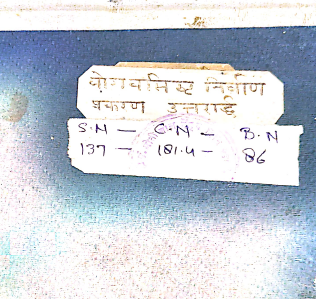 योगवासिष्ठ निर्वाण
प्रकरण उत्तरार्द्ध
S.N — C.N — B.N
137 — 181.4 — 86